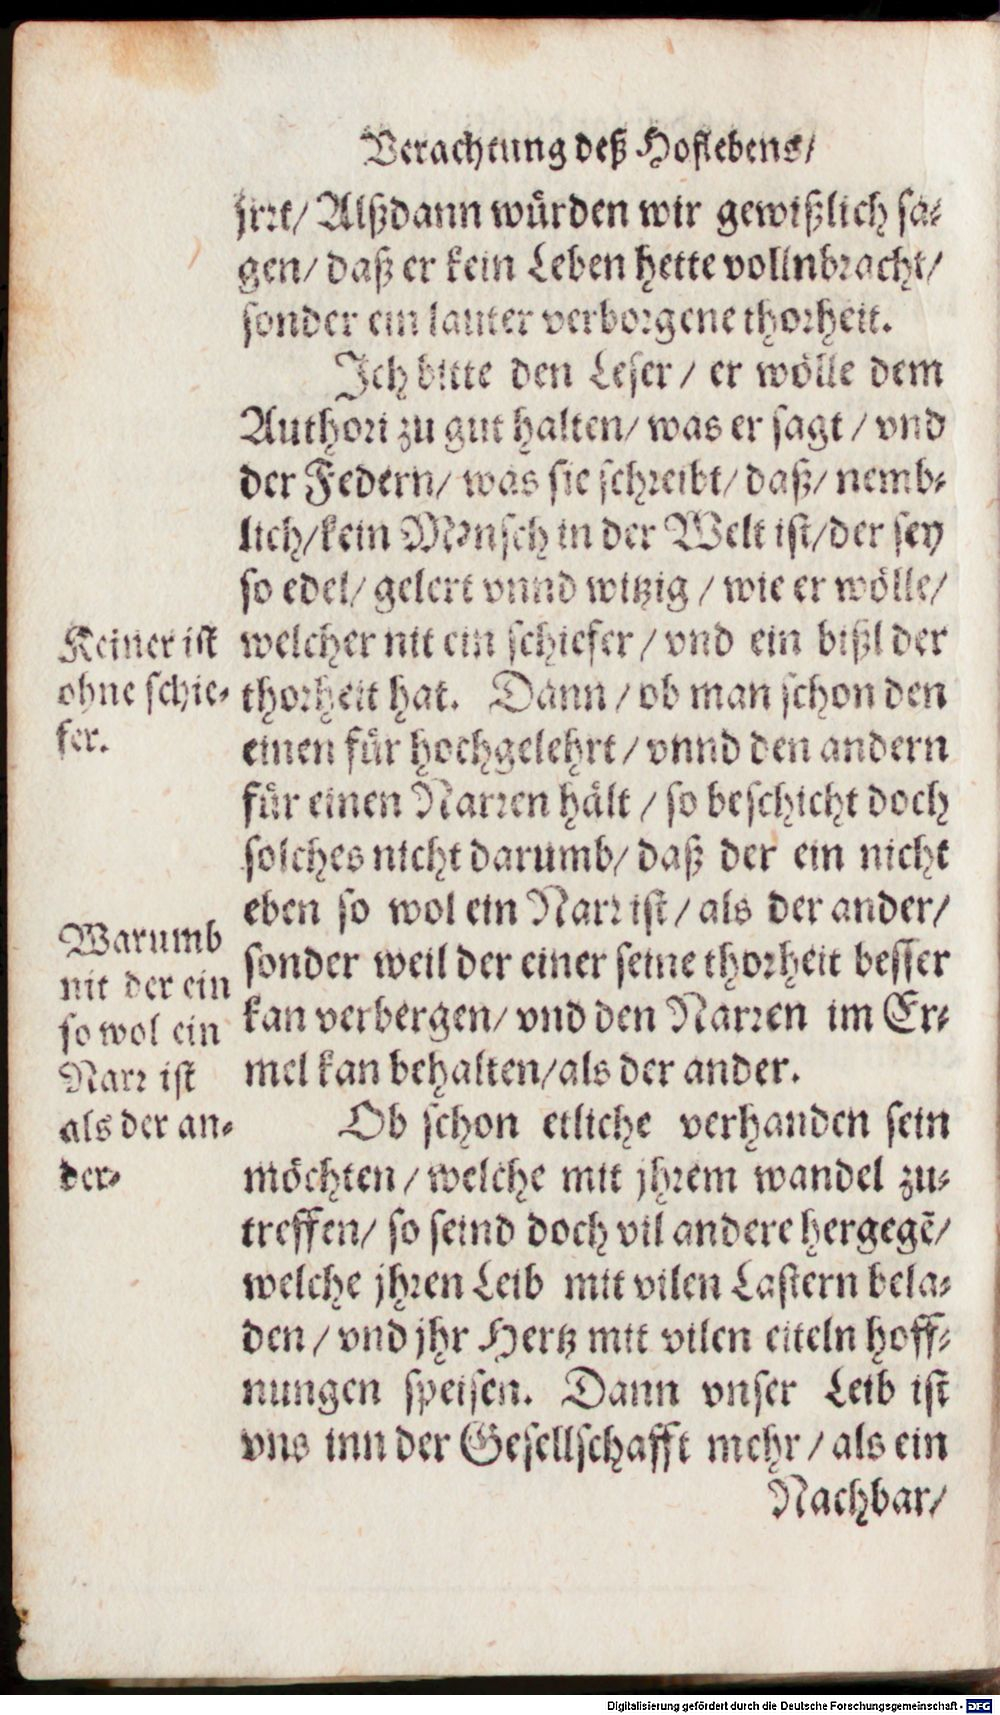 Verachtung deß Hoflebens/
jrrt/ Alßdann würden wir gewißlich sa-
gen/ daß er kein Leben hette vollnbracht/
sonder ein lauter verborgene thorheit.
Ich bitte den Leser / er wölle dem
Authori zu gut halten/ was er sagt / vnd
der Federn/ was sie schreibt/ daß/ nemb-
lich/kein Mensch in der Welt ist/der sey
so edel/ gelert vnnd witzig / wie er wölle/
welcher nit ein schiefer / vnd ein bißl der
thorheit hat. Dann / ob man schon den
einen für hochgelehrt / vnnd den andern
für einen Narren hält / so beschicht doch
solches nicht darumb/ daß der ein nicht
eben so wol ein Narr ist / als der ander/
sonder weil der einer seine thorheit besser
kan verbergen/ vnd den Narren im Er-
mel kan behalten/als der ander.
Keiner ist
ohne schie-
fer.
Warumb
nit der ein
so wol ein
Narr ist
als der an-
der-
Ob schon etliche verhanden sein
möchten / welche mit jhrem wandel zu-
treffen/ so seind doch vil andere hergegē/
welche jhren Leib mit vilen Lastern bela-
den / vnd jhr Hertz mit vilen eiteln hoff-
nungen speisen. Dann vnser Leib ist
vns inn der Gesellschafft mehr / als ein
Nachbar/
Digitalisierung gefördert durch die Deutsche Forschungsgemeinschaft - DFG